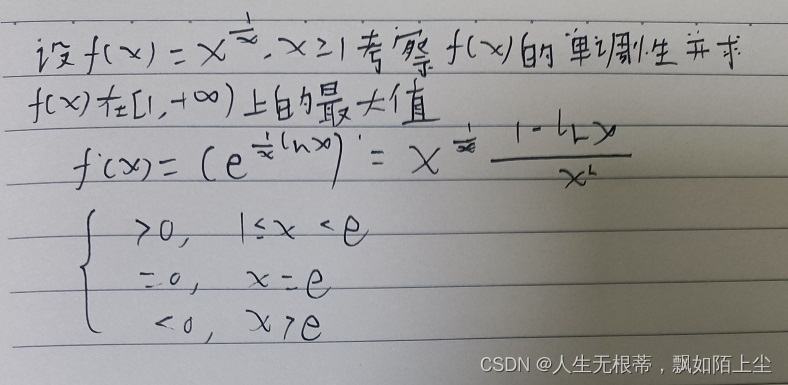 设f(x)=x^{\frac{1}{x}}, x≥1考察f(x)的单调性并求
f(x)在[1,+∞)上的最大值
f'(x)=(e^{\frac{1}{x}lnx})'=x^{\frac{1}{x}}\frac{1-lnx}{x^2}
>0, 1≤x<e
=0, x=e
<0, x>e
CSDN @人生无根蒂，飘如陌上尘